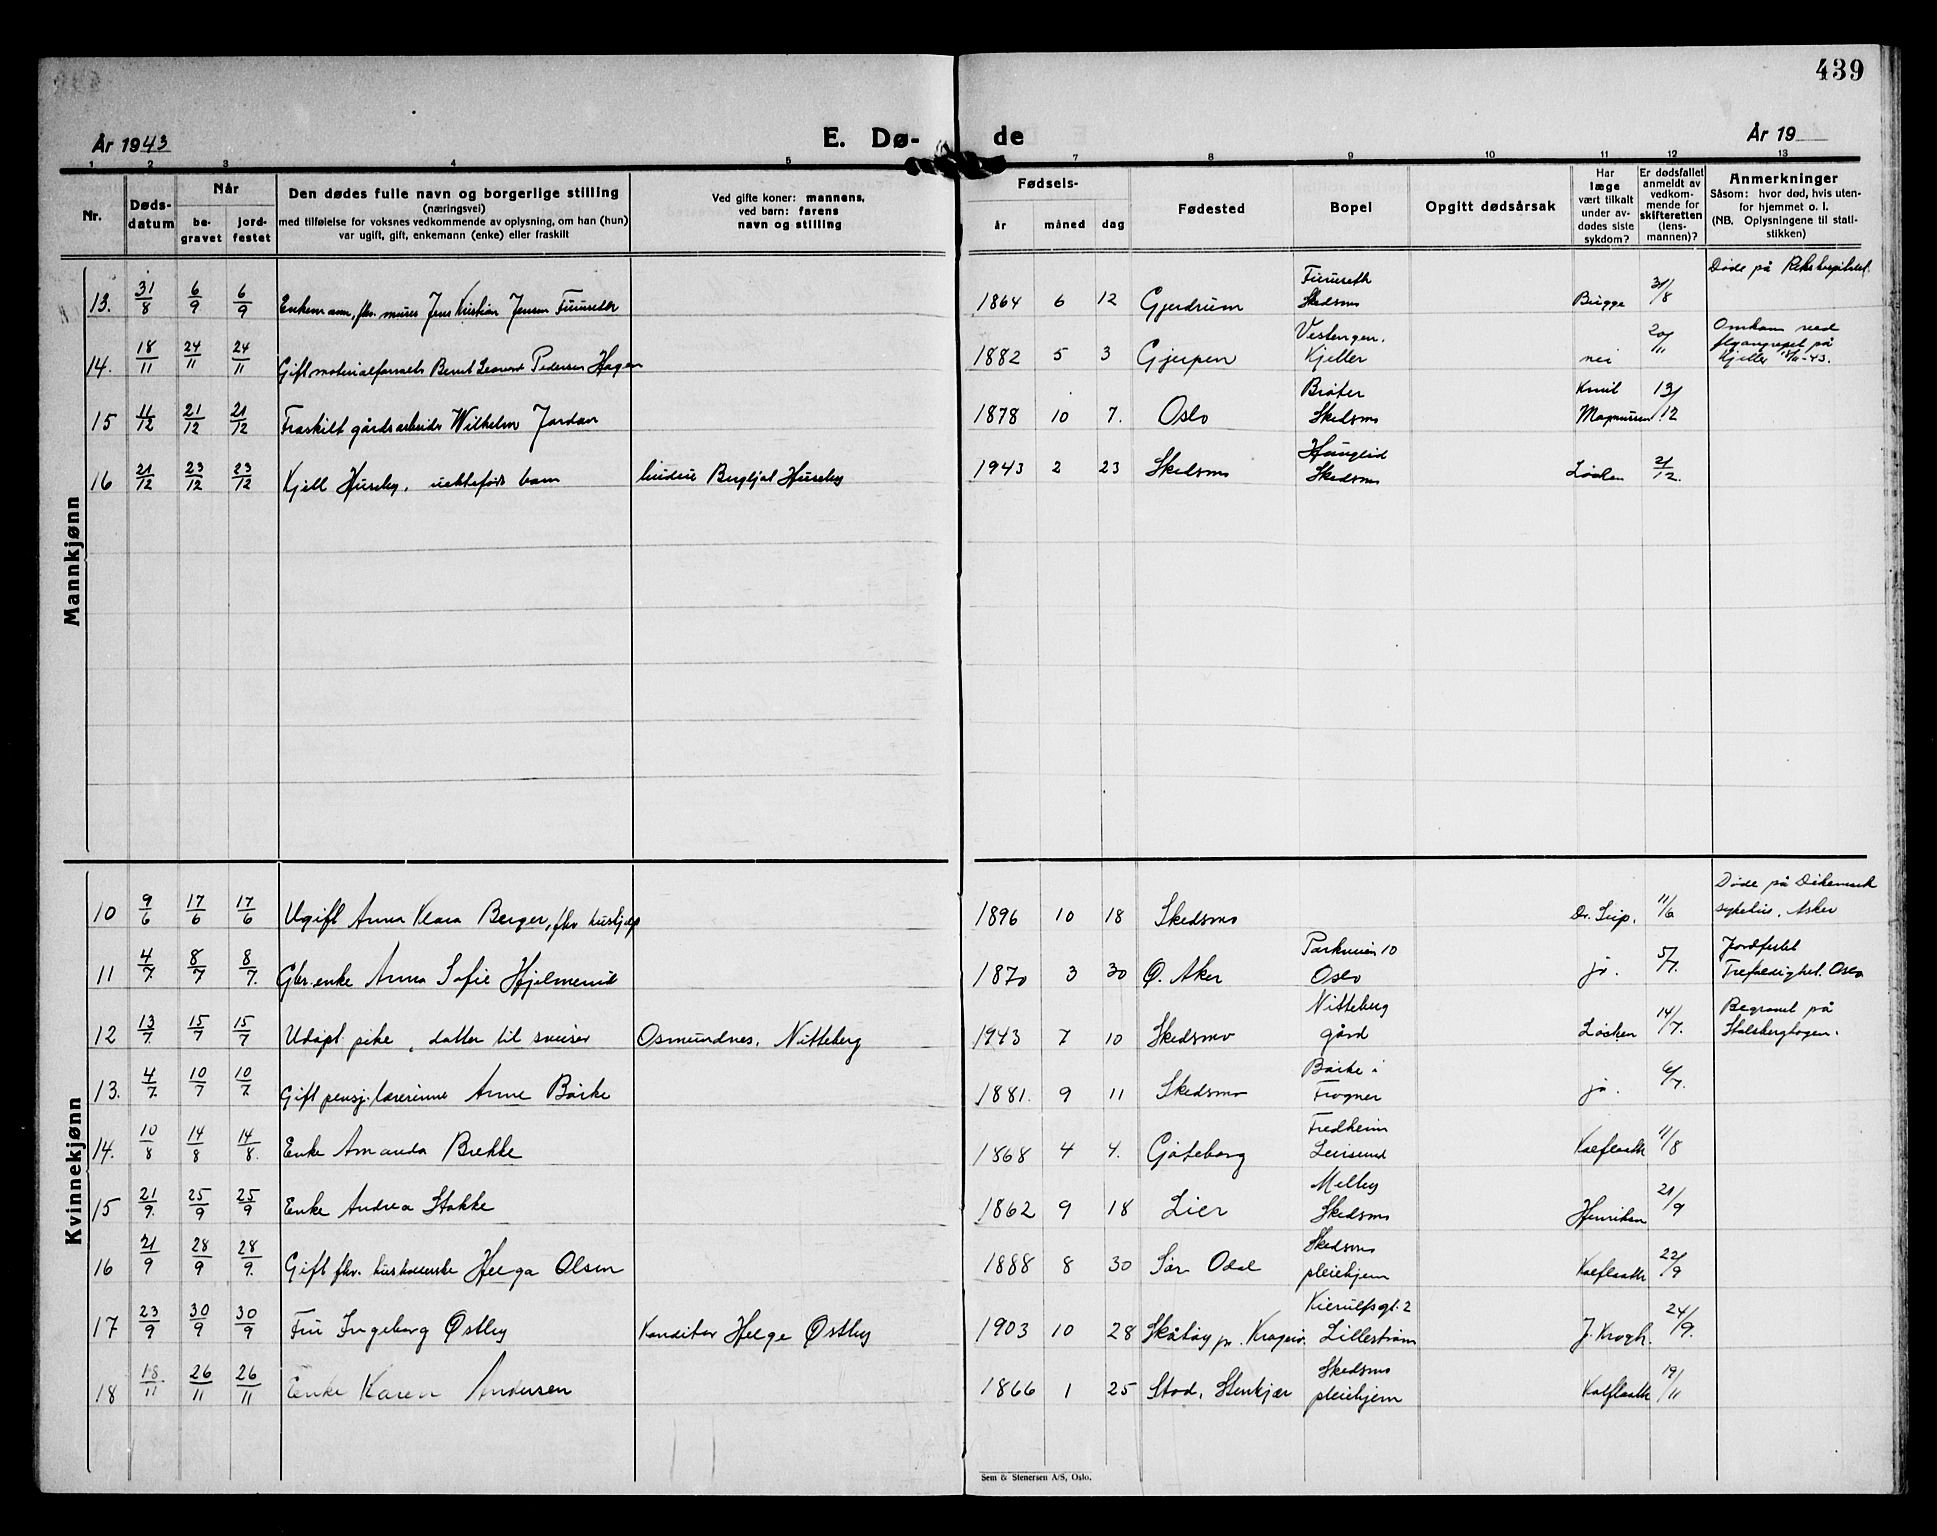 439
År 1943
E. Dø-
de
År 19
1 2 3 4 5 7 8 9 10 11 12 13
Nr.
Døds-
datum
Når
be-
gravet
jord-
festet
Den dødes fulle navn og borgerlige stilling
(næringsvei)
med tilføielse for voksnes vedkommende av oplysning, om han (hun)
var ugift, gift, enkemann (enke) eller fraskilt
Ved gifte koner: mannens,
ved barn: farens
navn og stilling
Fødsels-
år måned dag
Fødested
Bopel
Opgitt dødsårsak
Har
læge
vært tilkalt
under av-
dødes siste
sykdom?
Er dødsfallet
anmeldt av
vedkom-
mende for
skifteretten
(lens-
mannen)?
Anmerkninger
Såsom: hvor død, hvis uten-
for hjemmet o. l.
(NB. Oplysningene til stati-
stikken)
Mannkjønn
13. 31/8 6/9 6/9 Enkemann, fhv. murer Jens Kristian Jensen Furuseth 1864 6 12 Gjerdrum Furuseth Skedsmo Brügge 31/8 Døde på Rikshospitalet.
14. 18/11 24/11 24/11 Gift materialforvalt. Bernt Leonard Pedersen Hagen 1882 5 3 Gjerpen Vestengen, Kjeller nei 20/11 Omkom ved flyangrepet på Kjeller 18/11-43.
15 11/12 21/12 21/12 Fraskilt gårdsarbeider Wilhelm Jordan 1878 10 7. Oslo Bråter Skedsmo Knut Magnussen 13/12
16 21/12 23/12 23/12 Kjell Huseby, uektefødt barn Bergljot Huseby 1943 2 23 Skedsmo Skedsmo Løchen 21/12.
Kvinnekjønn
10 9/6 17/6 17/6 Ugift Anna Klara Berger, fhv hushjelp 1896 10 18 Skedsmo Dr. Seip. 11/6 Døde på Dikemark sykehus, Asker
11 4/7. 8/7 8/7. Gbr.enke Anna Sofie Hjelmerud 1870 3 30 Ø. Aker Parkveien 10 Oslo ja. 5/7. Jordfestet Trefoldighet. Oslo
12 13/7. 15/7 15/7 Udøpt pike, datter til sveiser Osmundnes, Nitteberg 1943 7 10 Skedsmo Nitteberg gård Løchen 14/7. Begravet på Stalsberghagen.
13. 4/7. 10/7 10/7. Gift pensj. lærerinne Anne Børke 1881. 9 11 Skedsmo Børke i Frogner ja. 6/7.
14. 10/8 14/8 14/8. Enke Amanda Brekke 1868 4 4. Gøteborg Fredheim Leirsund Kalflaath 11/8
15 21/9. 25/9 25/9 Enke Andrea Stokke 1862 9 18 Lier Melby Skedsmo Henriksen 21/9
16 21/9 28/9 28/9. Gift fhv. husholderske Helga Olsen 1888 8 30 Sør Odal Skedsmo pleiehjem Kalflaath 22/9
17 23/9 30/9 30/9 Fru Ingeborg Østby Konditor Helge Østby 1903 10 28 Skåtøy pr. Kragerø. Kierulfsgt. 2 Lillestrøm J. Krogh. 24/9.
18 18/11 26/11 26/11 Enke Karen Andersen 1866 1 25 Stod, Stenkjær Skedsmo pleiehjem Kalflaath 19/11
Sem & Stenersen A/S, Oslo.